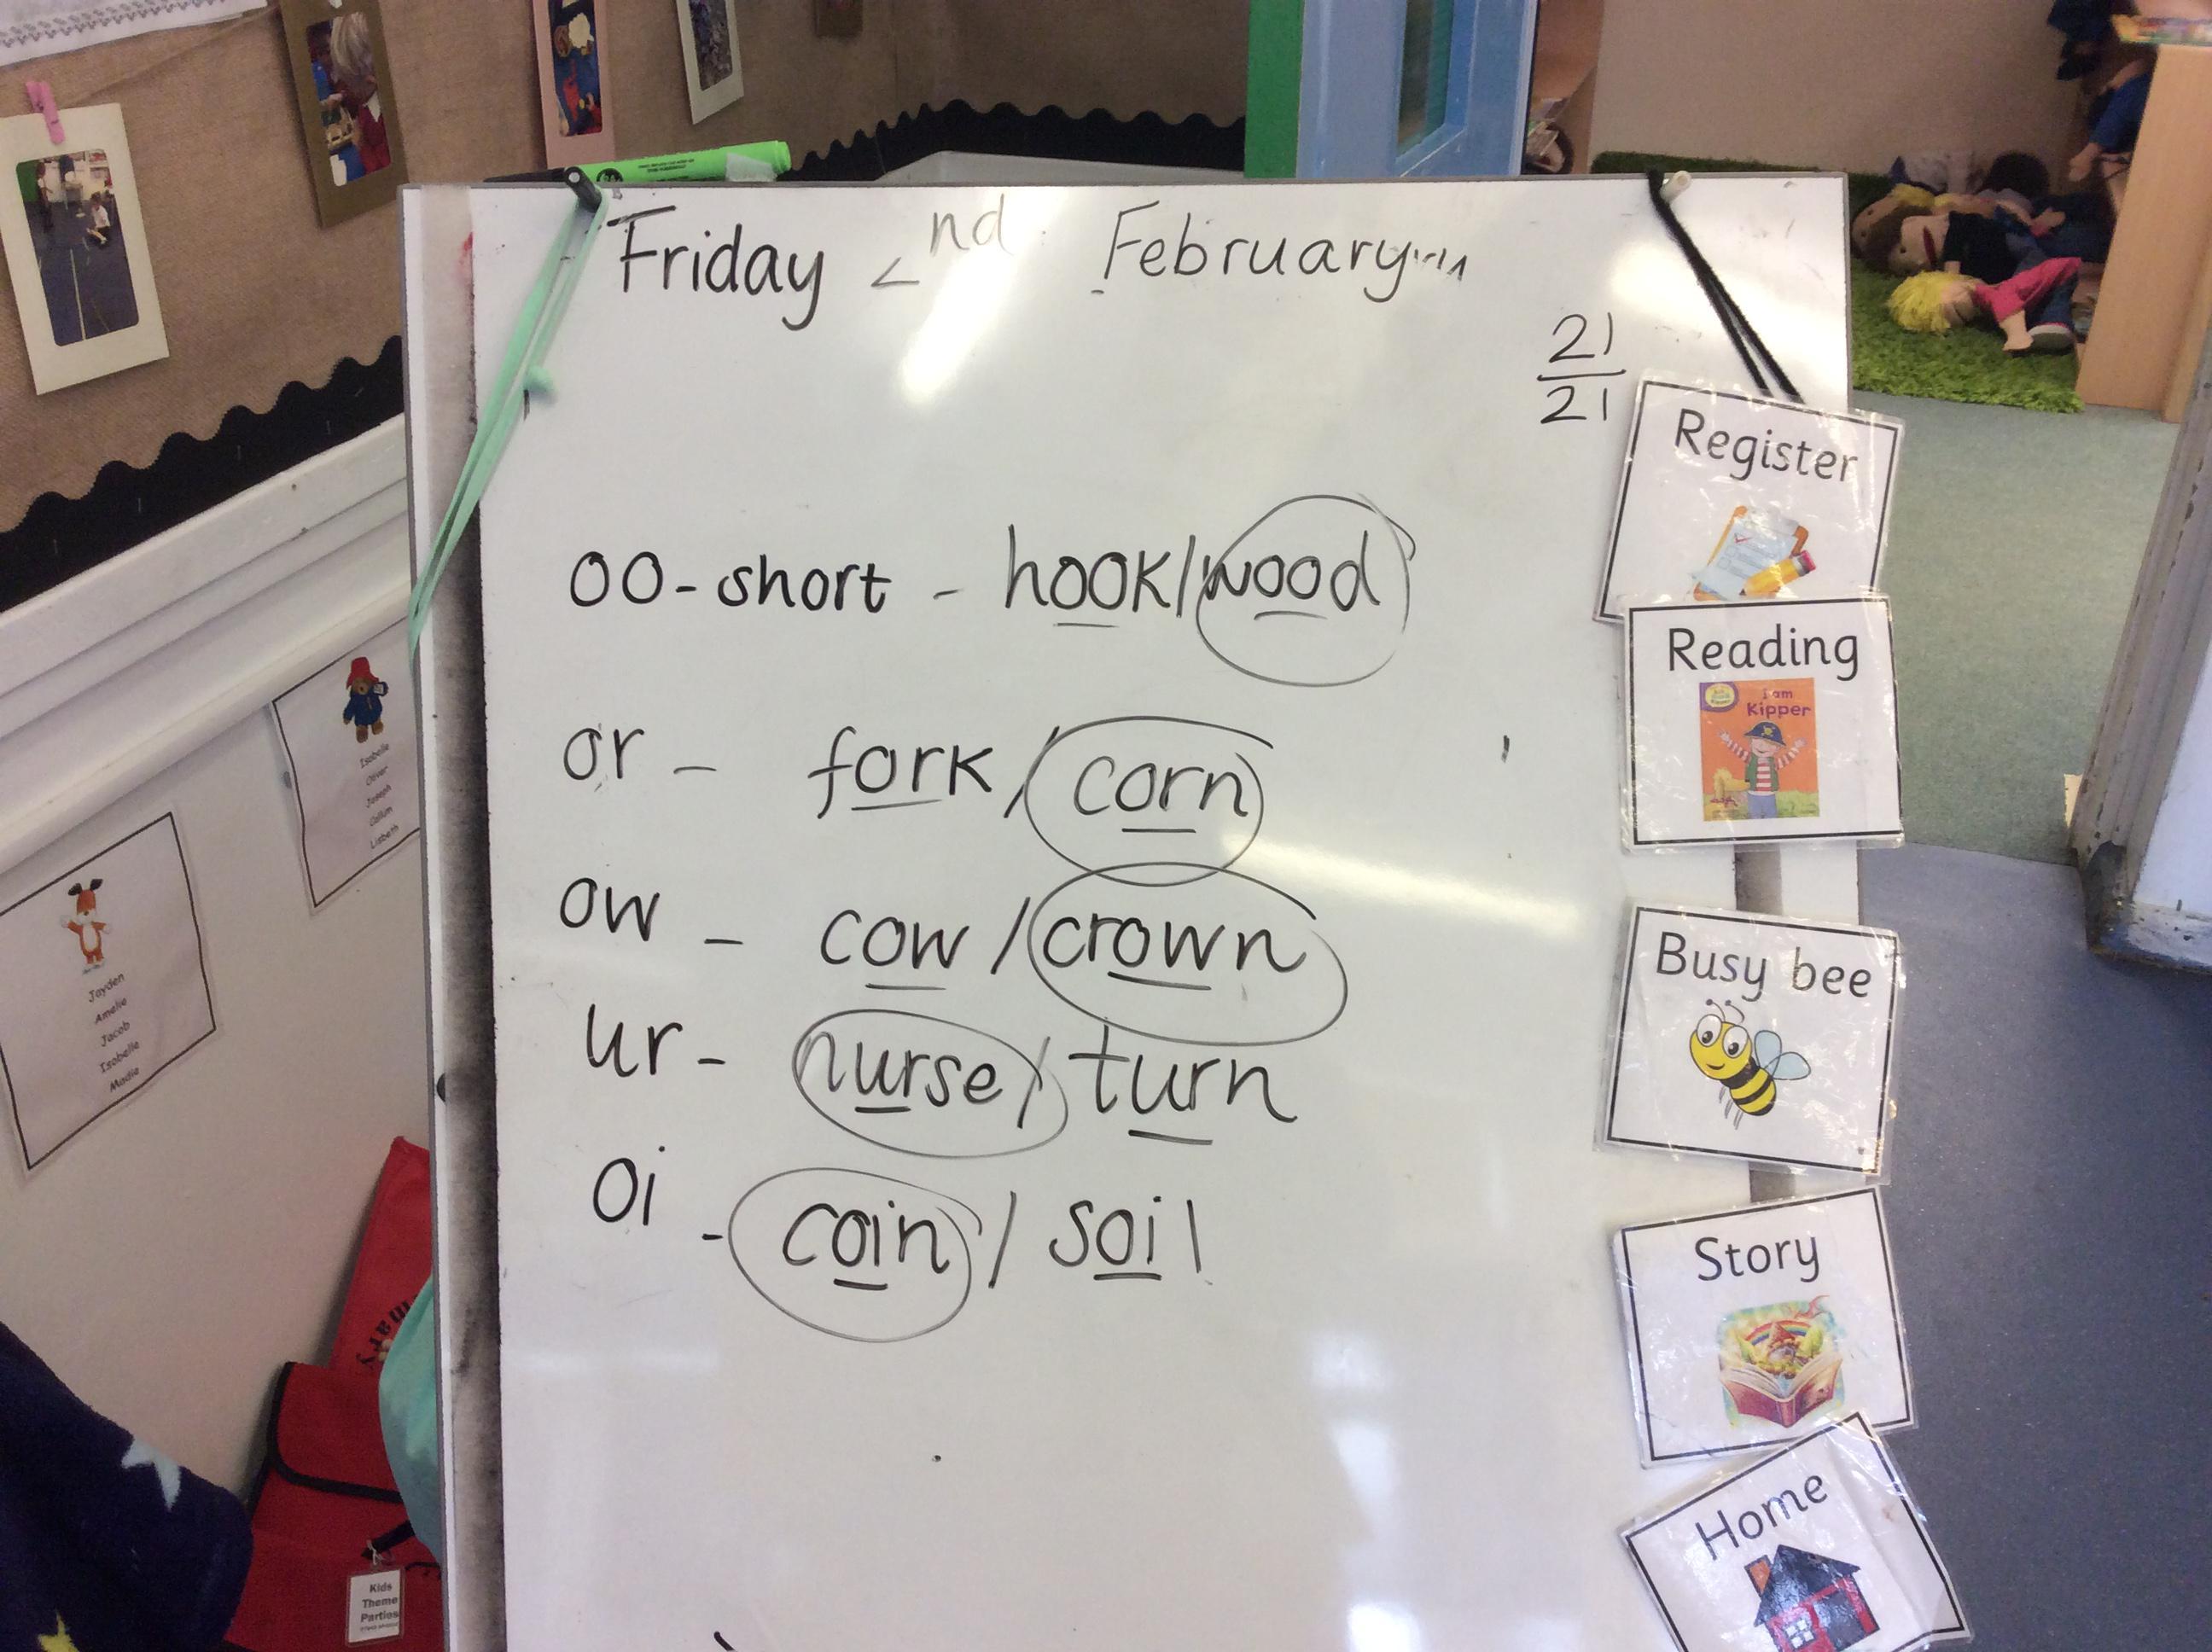 Friday 2nd February
21
21
oo-short - hook/wood
or - fork/corn
ow - cow/crown
ur - nurse/turn
oi - coin/soil
Register
Reading
I am
Kipper
Busy bee
Story
Home
Isabelle
Oliver
Joseph
Callum
Lisbeth
Jayden
Amelie
Jacob
Isobelle
Madie
Kids
Theme
Parties